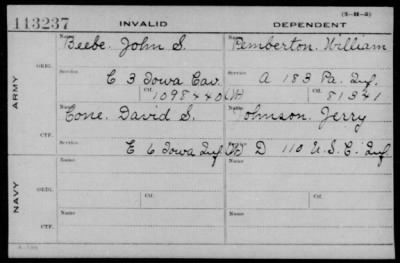 113237 INVALID DEPENDENT (3-H-5)
Name Name
Beebe. John S. Pemberton. William
ORIG. Service Service
C 3 Iowa Cav. A 183 Pa. Inf.
Ctf. 1098440 (W) Ctf. 81321
ARMY
Name Name
Cone. David S. Johnson. Jerry
CTF. Service
E 6 Iowa Inf. (W) D 110 U.S.C. Inf.
Name Name
ORIG.
Service Ctf. Service Ctf.
NAVY
Name Name
CTF.